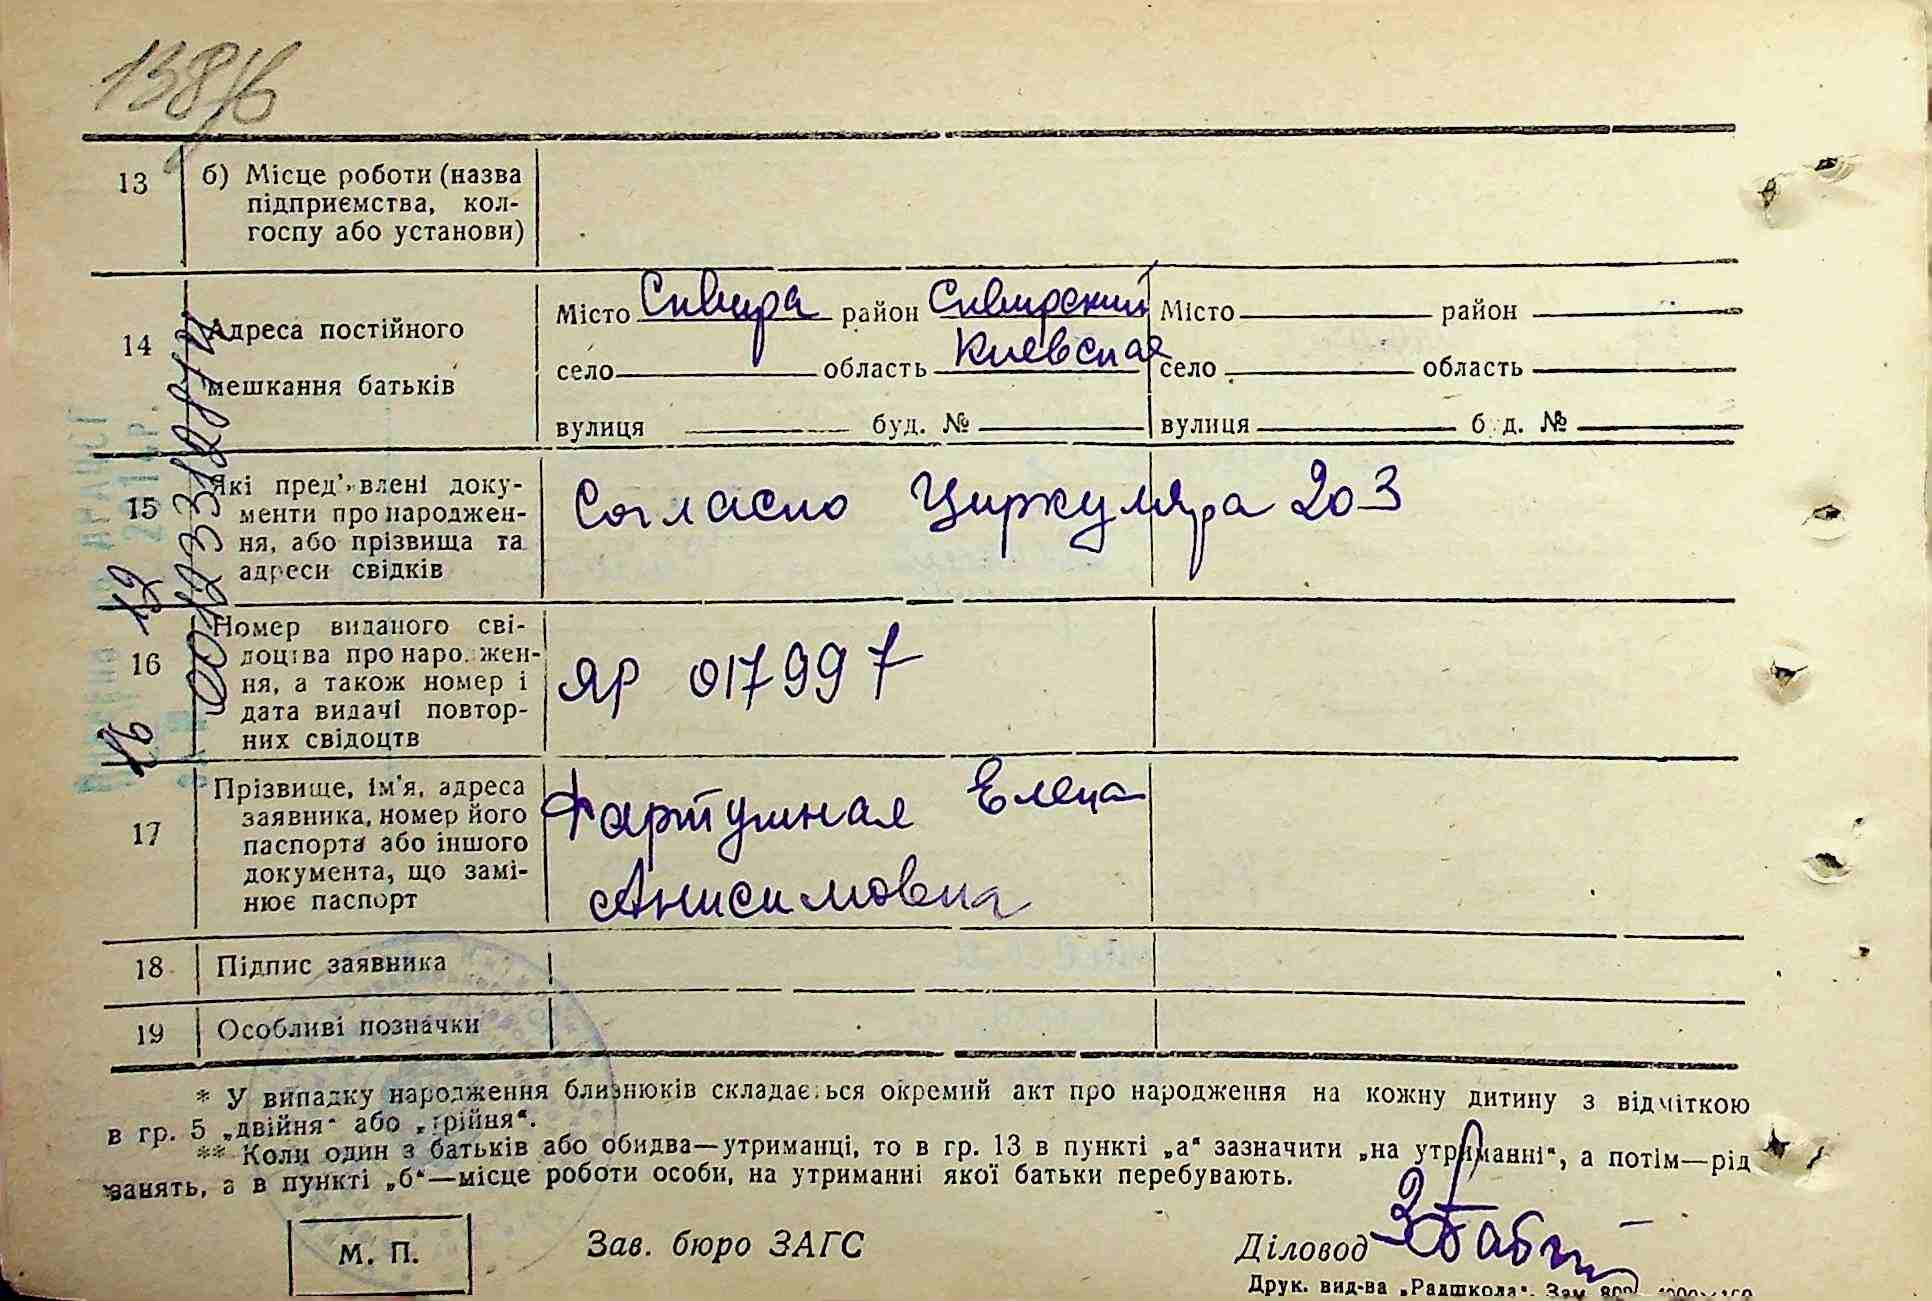 138
13
б) Місце роботи (назва
підприємства, кол-
госпу або установи)
14
Адреса постійного
мешкання батьків
Місто Сквира район Сквирский
село область Киевская
вулиця буд. №
Місто район
село область
вулиця буд. №
15
Які пред'явлені доку-
менти про народжен-
ня, або прізвища та
адреси свідків
Согласно Циркуляра 203
16
Номер виданого сві-
доцтва про народжен-
ня, а також номер і
дата видачі повтор-
них свідоцтв
ЯР 017997
17
Прізвище, ім'я, адреса
заявника, номер його
паспорта або іншого
документа, що замі-
нює паспорт
Фартушная Елена
Анисимовна
18
Підпис заявника
19
Особливі позначки
* У випадку народження близнюків складається окремий акт про народження на кожну дитину з відміткою
в гр. 5 „двійня“ або „трійня“.
** Коли один з батьків або обидва—утриманці, то в гр. 13 в пункті „а“ зазначити „на утриманні“, а потім—рід
занять, а в пункті „б“—місце роботи особи, на утриманні якої батьки перебувають.
М. П.
Зав. бюро ЗАГС
Діловод
Друк. вид-ва „Радшкола“. Зам.